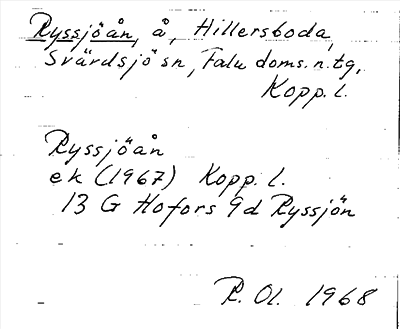 Ryssjöån, å, Hillersboda,
Svärdsjö sn, Falu doms. n. tg,
Kopp. l.
Ryssjöån
ek (1967) Kopp. l.
13 G Hofors 9d Ryssjön
R. Ol. 1968